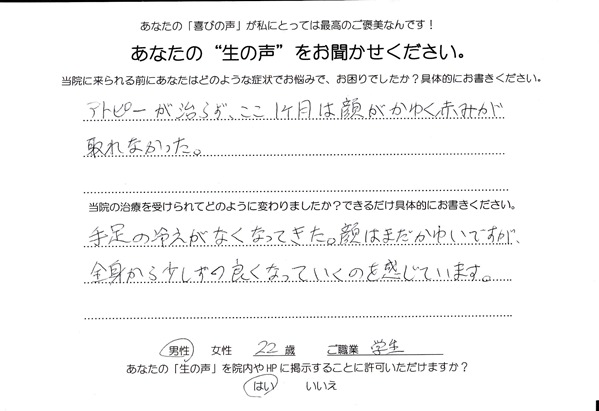 あなたの「喜びの声」が私にとっては最高のご褒美なんです！
あなたの“生の声”をお聞かせください。
当院に来られる前にあなたはどのような症状でお悩みで、お困りでしたか？具体的にお書きください。
アトピーが治らず、ここ1ヶ月は顔がかゆく赤みが
取れなかった。
当院の治療を受けられてどのように変わりましたか？できるだけ具体的にお書きください。
手足の冷えがなくなってきた。顔はまだかゆいですが、
全身から少しずつ良くなっていくのを感じています。
男性 女性 22 歳 ご職業 学生
あなたの「生の声」を院内やHPに掲示することに許可いただけますか？
はい いいえ